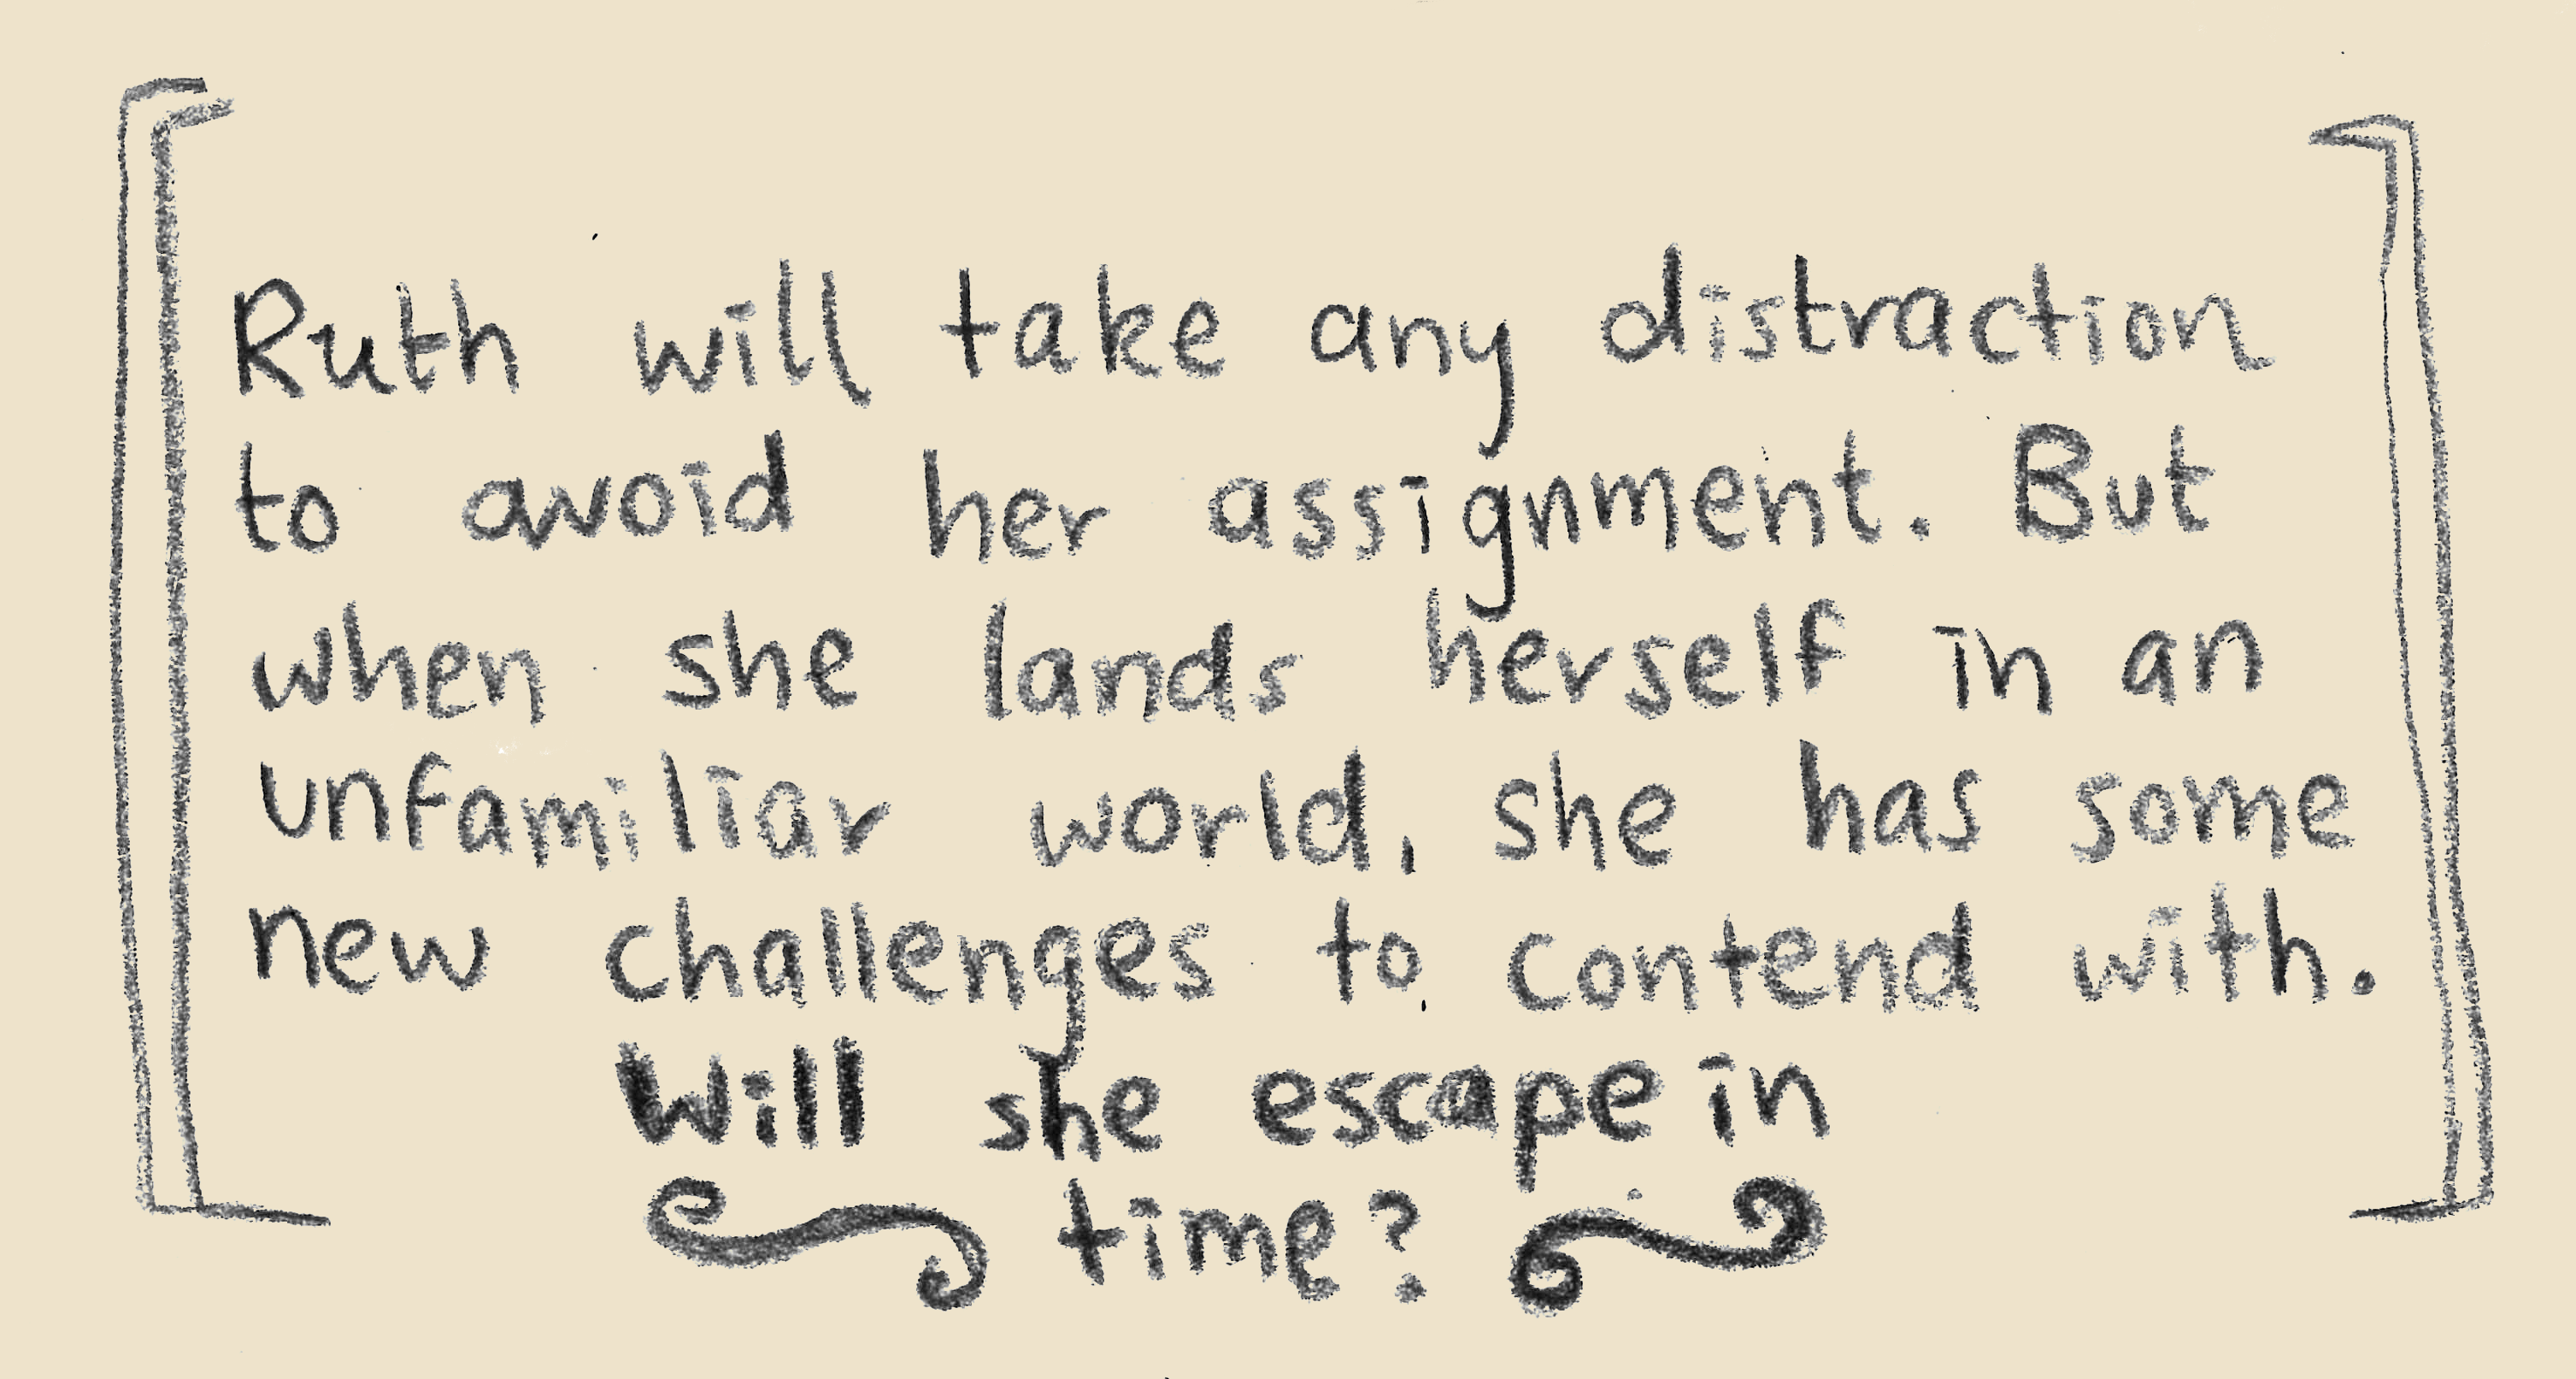 Ruth will take any distraction
to avoid her assignment. But
when she lands herself in an
unfamiliar world, she has some
new challenges to contend with.
Will she escape in
time?